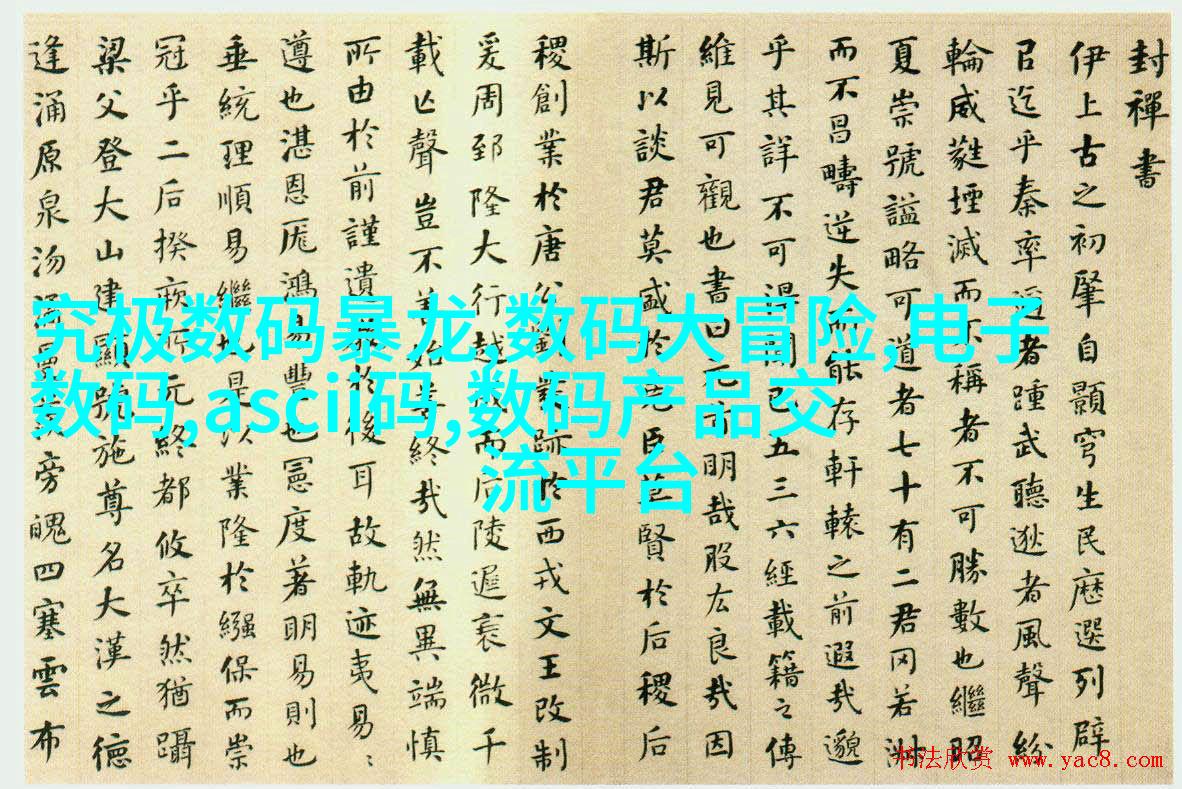 封禪書
伊上古之初肇自顥穹生民歷選列辟
㠯迄乎秦率邇者踵武聽逖者風聲紛
輪威蕤堙滅而不稱者不可勝數也繼昭
夏崇號謚略可道者七十有二君罔若淑
而不昌疇逆失而能存軒轅之前遐哉邈
乎其詳不可得聞已五三六經載籍之傳
維見可觀也書曰元首明哉股厷良哉因
斯以談君莫盛於堯臣莫賢於后稷后
稷創業於唐公劉發跡於西戎文王改制
爰周郅隆大行越成而后陵遲衰微千
載亡聲豈不善始善終哉然無異端慎
所由於前謹遺教於後耳故軌迹夷易〻
遵也湛恩厖鴻易豐也憲度著明易則也
垂統理順易繼也是以業隆於繈保而崇
冠乎二后揆厥所元終都攸卒然猶躡
梁父登大山建顯號施尊名大漢之德
逢涌原泉沕潏曼羨旁魄四塞雲布
究极数码暴龙,数码大冒险,电子
数码,ascii码,数码产品交
流平台
书法欣赏 www.yac8.com